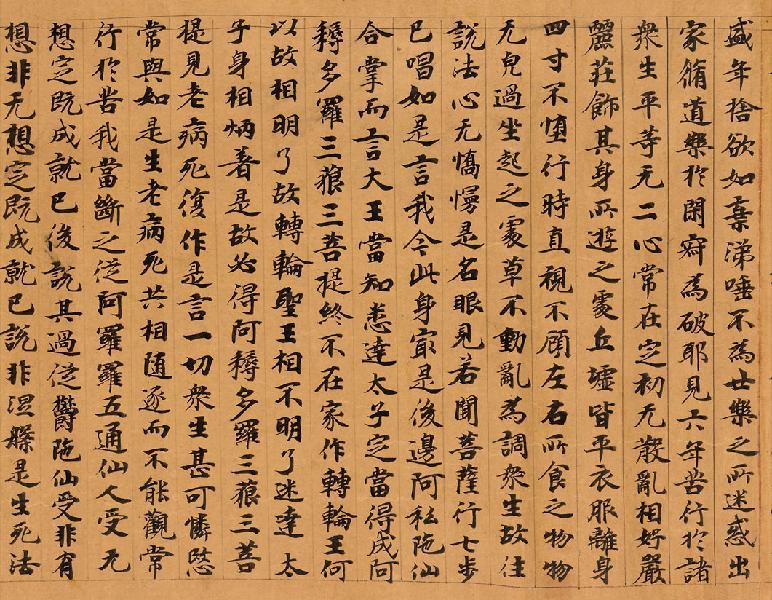 盛年捨欲如棄涕唾不為世樂之所迷惑出
家脩道樂於閑寂為破耶見六年苦行於諸
衆生平等无二心常在定初无散亂相好嚴
麗莊飾其身所遊之處丘墟皆平衣服離身
四寸不墮行時直視不顧左右所食之物物
无完過坐起之處草不動亂為調衆生故往
說法心无憍慢是名眼見若聞菩薩行七步
已唱如是言我今此身㝡是後邊阿私陁仙
合掌而言大王當知悉達太子定當得成阿
耨多羅三藐三菩提終不在家作轉輪王何
以故相明了故轉輪聖王相不明了迷達太
子身相炳著是故必得阿耨多羅三藐三菩
提見老病死復作是言一切衆生甚可憐愍
常與如是生老病死共相随逐而不能觀常
行於苦我當斷之從阿羅羅五通仙人受无
想定既成就已後說其過從欝陁仙受非有
想非无想定既成就已說非涅槃是生死法